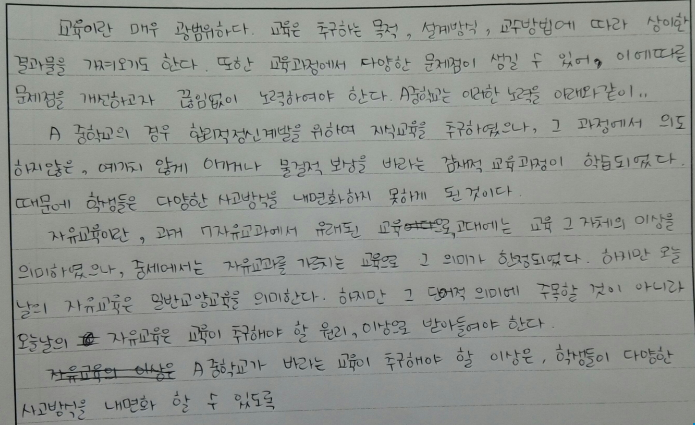 교육이란 매우 광범위하다. 교육은 추구하는 목적, 설계방식, 교수방법에 따라 상이한
결과물을 가져오기도 한다. 또한 교육과정에서 다양한 문제점이 생길 수 있어, 이에따른
문제점을 개선하고자 끊임없이 노력하여야 한다. A중학교는 이러한 노력을 아래와 같이..
A 중학교의 경우 합리적정신계발을 위하여 지식교육을 추구하였으나, 그 과정에서 의도
하지않은, 예기치 않게 아끼거나 물질적 보상을 바라는 잠재적 교육과정이 학습되었다.
때문에 학생들은 다양한 사고방식을 내면화하지 못하게 된것이다.
자유교육이란, 과거 7자유교과에서 유래된 교육으로, 고대에는 교육 그 자체의 이상을
의미하였으나, 중세에서는 자유교과를 가르치는 교육으로 그 의미가 한정되었다. 하지만 오늘
날의 자유교육은 일반교양교육을 의미한다. 하지만 그 단어적 의미에 주목할 것이 아니라
오늘날의 자유교육은 교육이 추구해야 할 원리, 이상으로 받아들여야 한다.
자유교육의 이상은 A 중학교가 바라는 교육이 추구해야 할 이상은, 학생들이 다양한
사고방식을 내면화 할 수 있도록